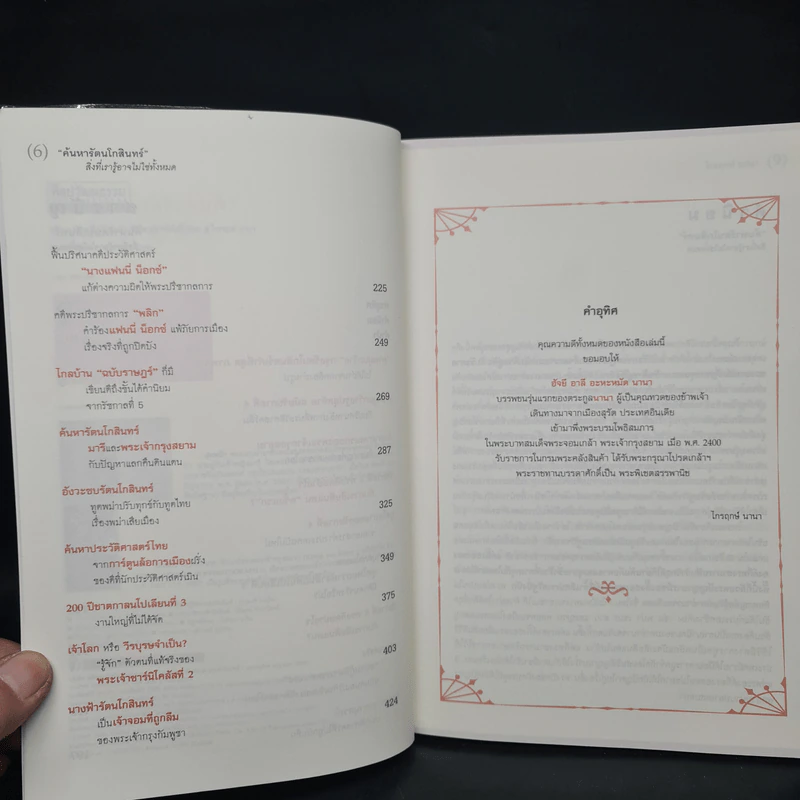 (6) "ค้นหารัตนโกสินทร์"
สิ่งที่เรารู้อาจไม่ใช่ทั้งหมด
ฟื้นปริศนาคดีประวัติศาสตร์
"นางแฟนนี่ น็อกซ์"
แก้ต่างความผิดให้พระปรีชากลการ
225
คดีพระปรีชากลการ "พลิก"
คำร้องแฟนนี่ น็อกซ์ แพ้ภัยการเมือง
เรื่องจริงที่ถูกปิดบัง
249
ไกลบ้าน "ฉบับราษฎร์" ที่มี
เขียนดีถึงขั้นได้คำนิยม
จากรัชกาลที่ 5
269
ค้นหารัตนโกสินทร์
มารีและพระเจ้ากรุงสยาม
กับปัญหาแลกคืนดินแดน
287
อังวะซบรัตนโกสินทร์
ทูตพม่าปรับทุกข์กับทูตไทย
เรื่องพม่าเสียเมือง
325
ค้นหาประวัติศาสตร์ไทย
จากการ์ตูนล้อการเมืองฝรั่ง
ของดีที่นักประวัติศาสตร์เมิน
349
200 ปีชาตกาลนโปเลียนที่ 3
งานใหญ่ที่ไม่ได้จัด
375
เจ้าโลก หรือ วีรบุรุษจำเป็น?
"รู้จัก" ตัวตนที่แท้จริงของ
พระเจ้าซาร์นิโคลัสที่ 2
403
นางฟ้ารัตนโกสินทร์
เป็นเจ้าจอมที่ถูกลืม
ของพระเจ้ากรุงกัมพูชา
424
คำอุทิศ
คุณความดีทั้งหมดของหนังสือเล่มนี้
ขอมอบให้
ฮัจยี อาลี อะหะหมัด นานา
บรรพชนรุ่นแรกของตระกูลนานา ผู้เป็นคุณทวดของข้าพเจ้า
เดินทางมาจากเมืองสุรัต ประเทศอินเดีย
เข้ามาพึ่งพระบรมโพธิสมภาร
ในพระบาทสมเด็จพระจอมเกล้า พระเจ้ากรุงสยาม เมื่อ พ.ศ. 2400
รับราชการในกรมพระคลังสินค้า ได้รับพระกรุณาโปรดเกล้าฯ
พระราชทานบรรดาศักดิ์เป็น พระพิเชตสรรพานิช
ไกรฤกษ์ นานา